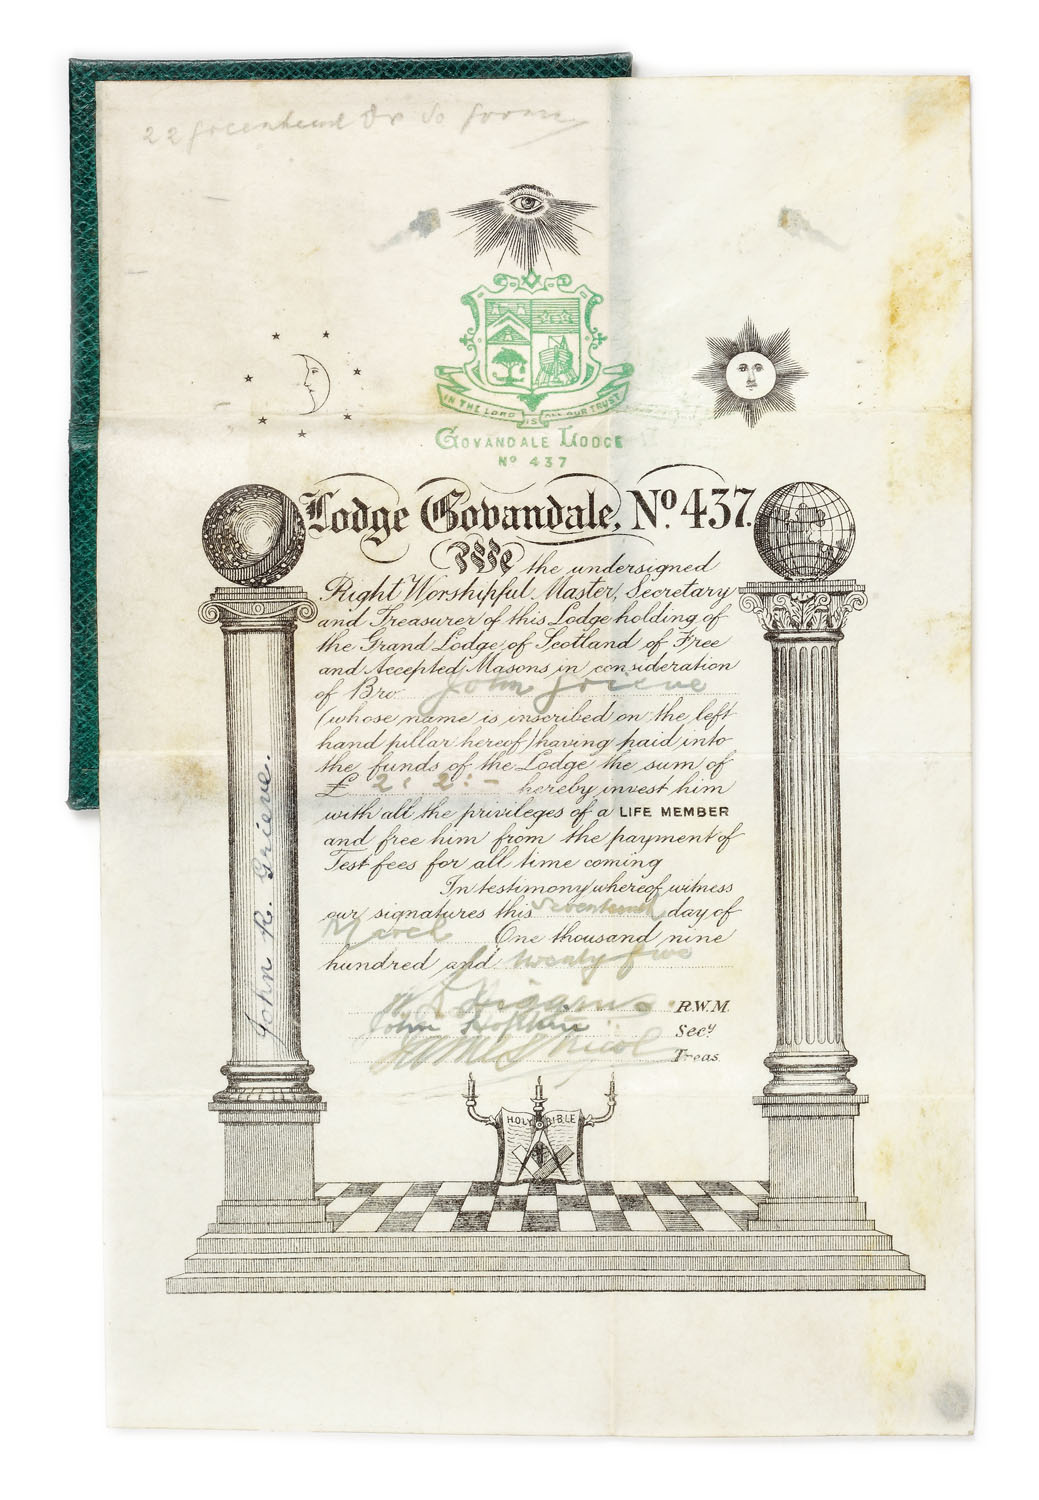 22 Greenhead
IN THE LORD IS ALL OUR TRUST
GOVANDALE LODGE
Nº 437
Lodge Govandale, Nº 437.
We the undersigned
Right Worshipful Master, Secretary
and Treasurer of this Lodge holding of
the Grand Lodge of Scotland of Free
and Accepted Masons in consideration
of Bro John Grieve
(whose name is inscribed on the left
hand pillar hereof) having paid into
the funds of the Lodge the sum of
£ 2: 2: - hereby invest him
with all the privileges of a LIFE MEMBER
and free him from the payment of
Test fees for all time coming
In testimony whereof witness
our signatures this Seventeenth day of
March One thousand nine
hundred and twenty five
R.W.M.
John Secy
Treas.
John R. Grieve.
HOLY BIBLE